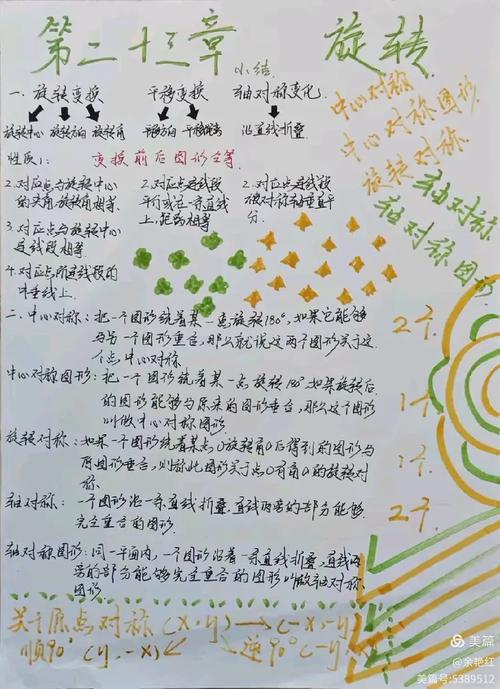 第二十三章 旋转
小结
一. 旋转变换 平移变换 轴对称变化
旋转中心 旋转方向 旋转角 平移方向 平移距离 沿直线折叠
性质: 变换前后图形全等
2.对应点与旋转中心 2.对应点连线段 2.对应点连线段
的夹角,旋转角相等. 平行或在一条直线 被对称轴垂直平
上,距离相等 分.
3.对应点与旋转中心
连线段相等.
4.对应点所连线段的
中垂线上.
中心对称
中心对称图形
旋转对称
轴对称
轴对称图形
二.中心对称:把一个图形绕着某一点旋转180°,如果它能够 2个
与另一个图形重合,那么就说这两个图形关于这
个点中心对称
中心对称图形:把一个图形绕着某一点旋转180°如果旋转后
的图形能够与原来的图形重合,那么这个图形 1个
叫做中心对称图形.
旋转对称:如果一个图形绕着某点O旋转角α后得到的图形与
原图形重合,则称此图形关于点O有角α的旋转对 1个
称.
轴对称:一个图形沿一条直线折叠,直线两旁的部分能够 2个
完全重合的图形.
轴对称图形:同一平面内,一个图形沿着一条直线折叠,直线两
旁的部分能够完全重合的图形叫做轴对称
图形
关于原点对称(x·y)→(-x·-y)
顺90°(y,-x) 逆90°(-y
美篇
@余艳红
美篇号:5389512